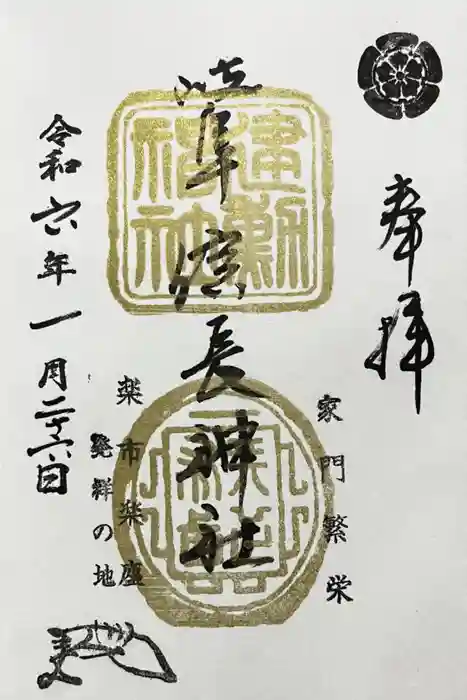 奉拝
家門繁栄
岐阜信長神社
建勲
神社
楽市楽座
発祥の地
令和六年一月二十六日